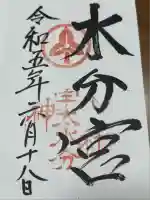 水分宮
令和五年六月十八日
神